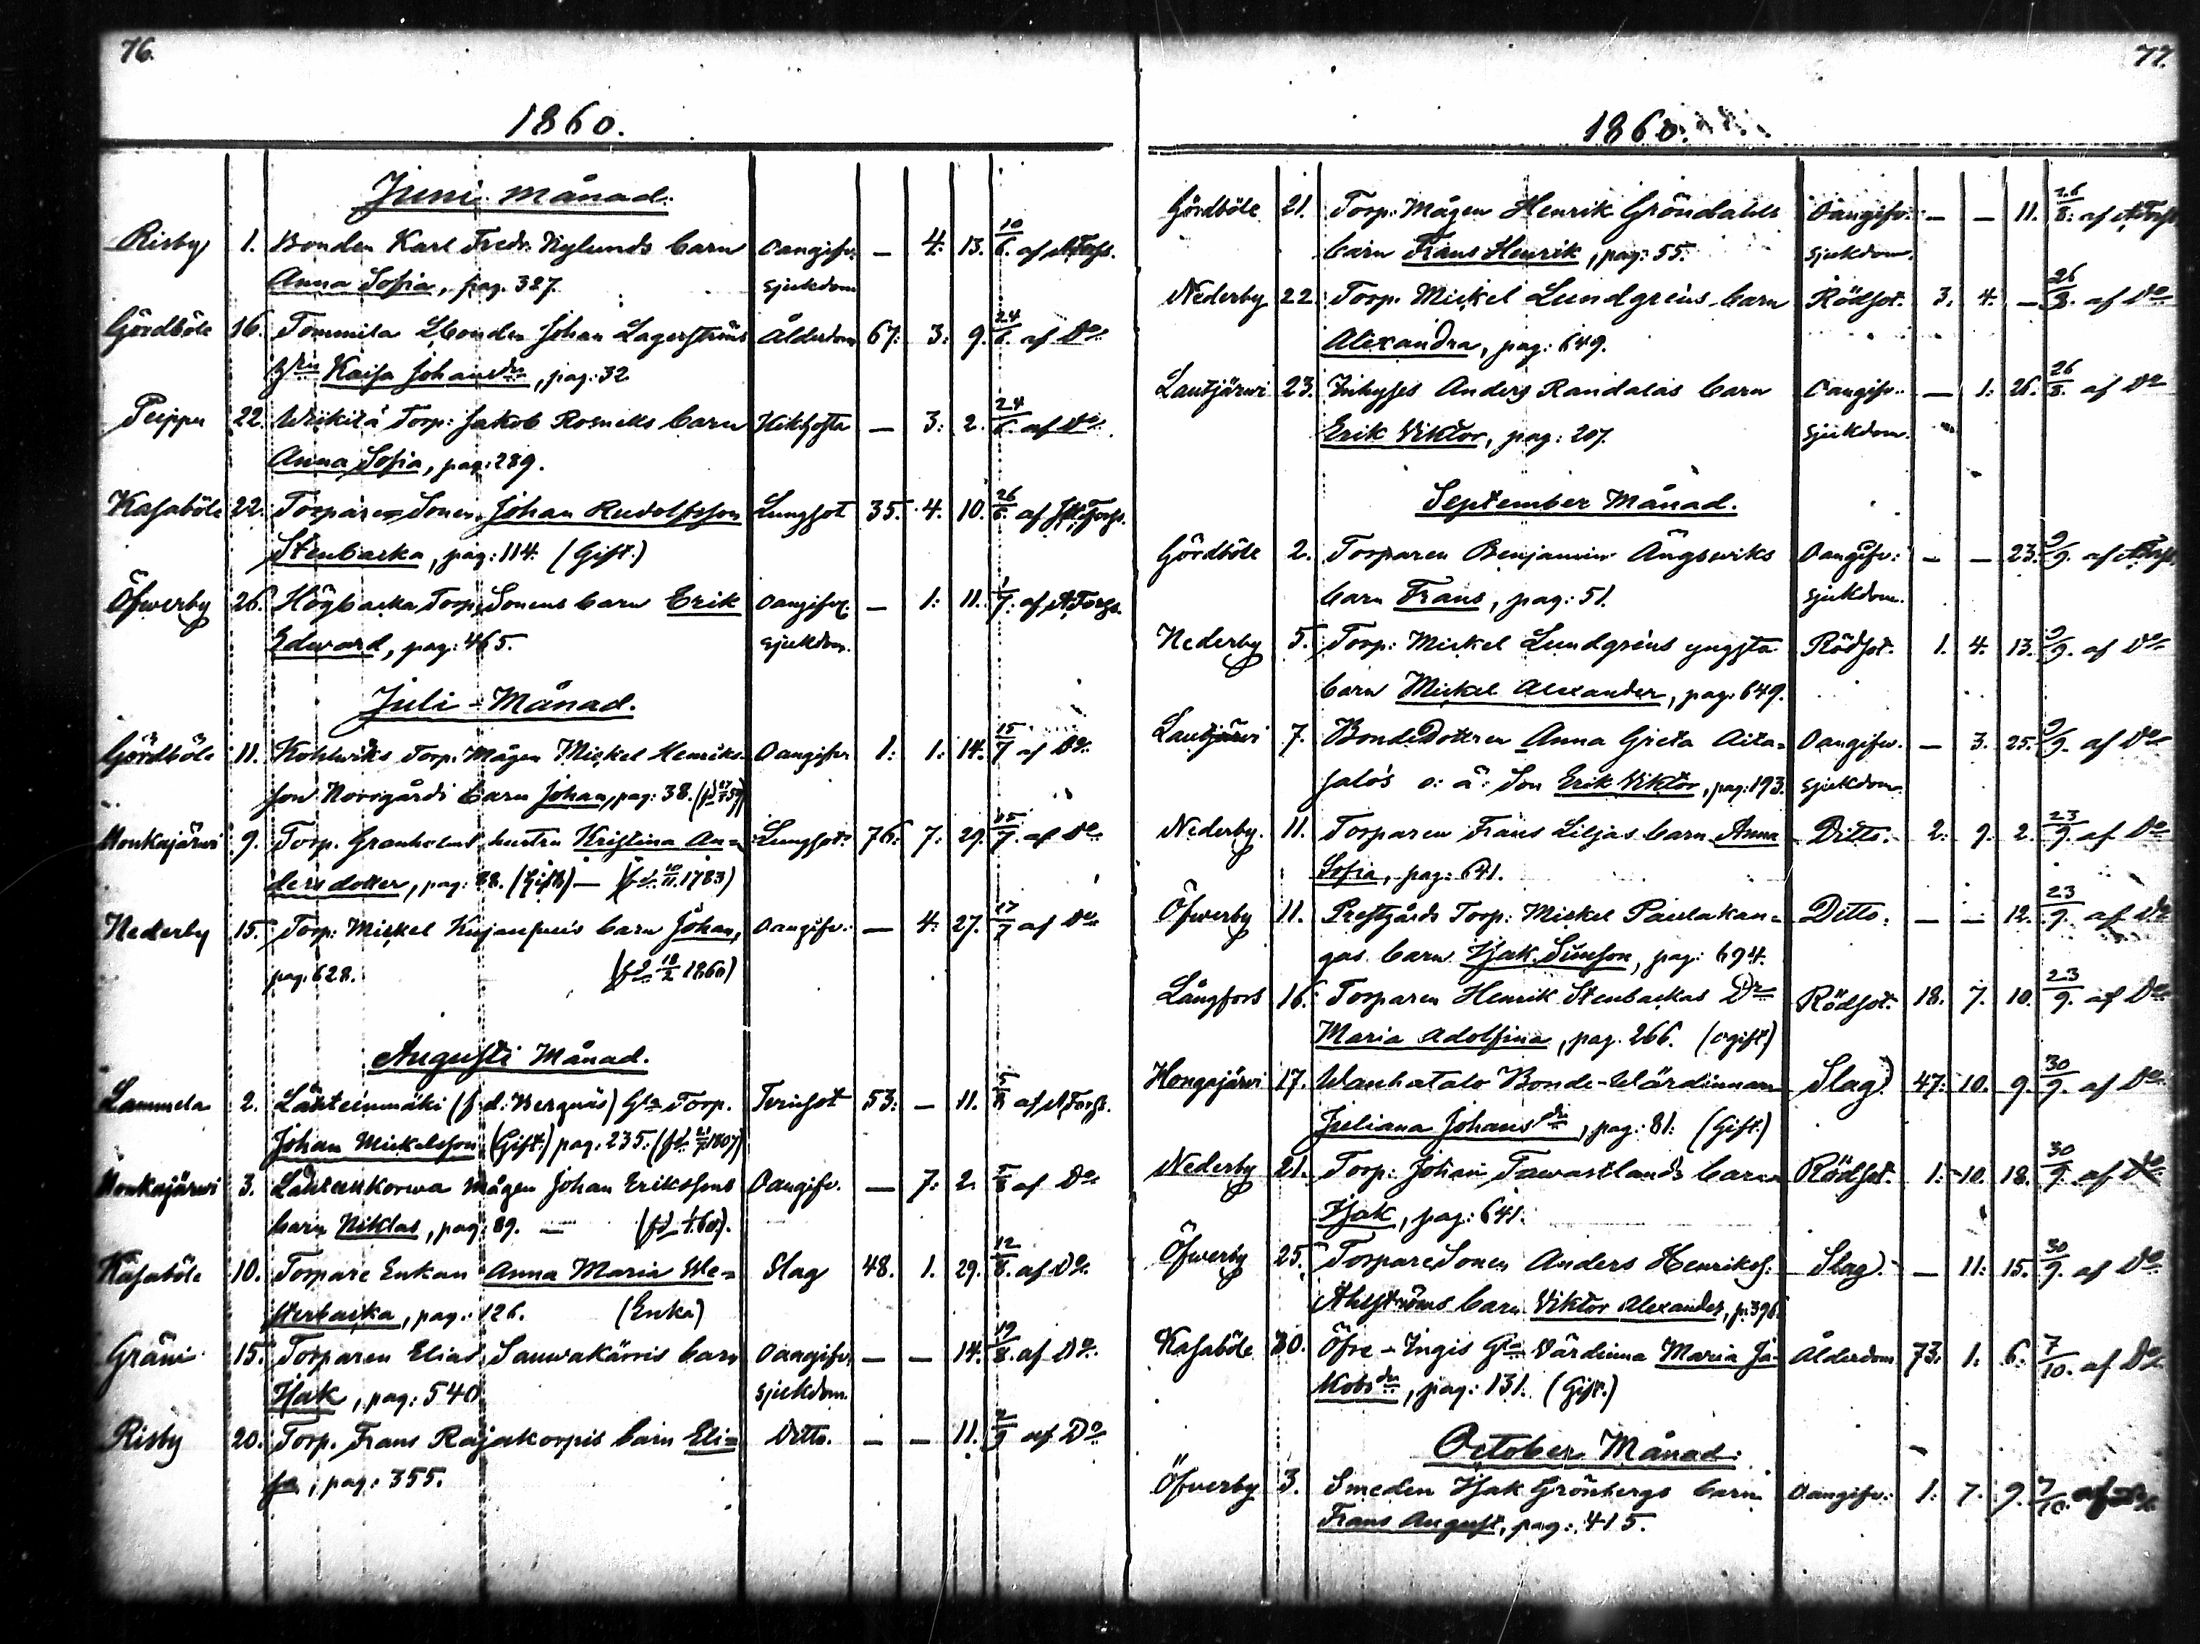 76.
1860.
Juni månad.
Risby 1. Bonden Karl Fredr. Nylunds barn Oangifv. — 4. 13. 10/6. af ATorfs.
Anna Sofia, pag. 327. sjukdom
Gördböle 16. Tommila Bonden Johan Lagerströms Ålderdom 67: 3: 9. 24/6. af Do.
Kajsa Johansdr, pag: 32
Peippu 22. Torp: Jakob Rosnells barn Kikhosta — 3: 2. 24/6. af Do.
Anna Sofia, pag: 289.
Kasaböle 22. Torpare Sonen Johan Rudolfsson Lungsot 35. 4. 10. 26/6. af
Stenbacka, pag: 114. (Gift.)
Öfwerby 26. Högbacka Torp. Sonens barn Erik Oangifv. — 1: 11. 1/7. af ATorfs.
Edward, pag: 465. sjukdom.
Juli - Månad.
Gördböle 11. Torp. Mågen Mickel Henriks- Oangifv. 1: 1: 14. 15/7 af Do.
son Norrgårds barn Johan, pag: 38.
Honkajärwi 9. Torp. Granholms hustru Kristina An= Lungsot. 76. 7: 29. 15/7. af Do.
dersdotter, pag: 88. (Gift) — (fd. 1783)
Nederby 15. Torp: Mickel barn Johan, Oangifv.: — 4: 27. 17/7 af Do.
pag. 628. (fd 18/2 1860)
Augusti Månad.
Lammela 2. Lähteinmäki (f. d. Bergnäs) Gla Torp. 53: — 11. 5/8 af ATorfs.
Johan Mickelsson (Gift.) pag. 235. (fd 1807)
Honkajärwi 3. Lähteenkorwa Mågen Johan Erikssons Oangifv. — 7: 2. 5/8 af Do.
barn Niklas, pag: 89. —
Kasaböle 10. Torpare Enkan Anna Maria We= Slag 48. 1. 29. 12/8. af Do.
sterbacka, pag: 126. (Enka)
Gräni 15. Torparen Elias Sauwakärris barn Oangifv. — — 14. 19/8. af Do.
Isak, pag: 540 sjukdom.
Risby 20. Torp. Frans Rajakorpis barn Eli= Ditto. — — 11. 2/9 af Do.
sa, pag: 355.
77.
1860.
Gördböle 21. Torp: Mågen Henrik Gröndahls Oangifv: — — 11. 26/8. af ATorfs.
barn Frans Henrik, pag: 55. sjukdom.
Nederby 22. Torp. Mickel Lundgréns barn Rödsot. 3. 4. — 26/8. af Do.
Alexandra, pag: 649.
Lautjärwi 23. Inhyses Anders Randalas barn Oangifv.. — 1: 26. 26/8. af Do
Erik Viktor, pag: 207. sjukdom.
September Månad.
Gördböle 2. Torparen Benjamin Ängswiks Oangifv: — — 23. 9/9. af ATorfs.
barn Frans, pag: 51. sjukdom.
Nederby 5. Torp: Mickel Lundgréns yngsta Rödsot. 1. 4. 13. 9/9. af Do.
barn Mickel Alexander, pag: 649.
Lautjärwi 7. Bonde Dottren Anna Greta Aita= Oangifv. — 3. 25. 9/9. af Do.
salo's o: ä: Son Erik Viktor, pag: 193. sjukdom
Nederby. 11. Torparen Frans Liljas barn Anna Ditto. 2: 9. 2. 23/9. af Do
Sofia, pag: 641.
Öfwerby 11. Prestgårds Torp: Mickel Paulakan= Ditto. — — 12. 23/9. af Do
gas barn Isak Simson, pag: 694.
Långfors 16. Torparen Henrik Stenbackas Dr Rödsot. 18. 7. 10. 23/9. af Do.
Maria Adolfina, pag. 266. (ogift)
Hongajärwi 17. Wanhatalo Bonde-Wärdinnan Slag 47: 10. 9. 30/9. af Do.
Juliana Johansdr, pag: 81: (Gift.)
Nederby 21. Torp: Johan Tawastlands barn Rödsot. 1: 10. 18. 30/9. af Do
Isak, pag: 641.
Öfwerby 25. Torpare Sonen Anders Henrikss. Slag. — 11: 15. 30/9. af Do
Ahlströms barn Viktor Alexander, p. 396.
Kasaböle 30. Öfre-Ingis Gla Värdinna Maria Ja- Ålderdom 73: 1. 6. 7/10. af Do.
kobsdr, pag: 131. (Gift.)
October Månad:
Öfwerby 3. Smeden Isak Grönbergs barn Oangifv: 1: 7. 9. 7/10. af
Frans August, pag: 415.